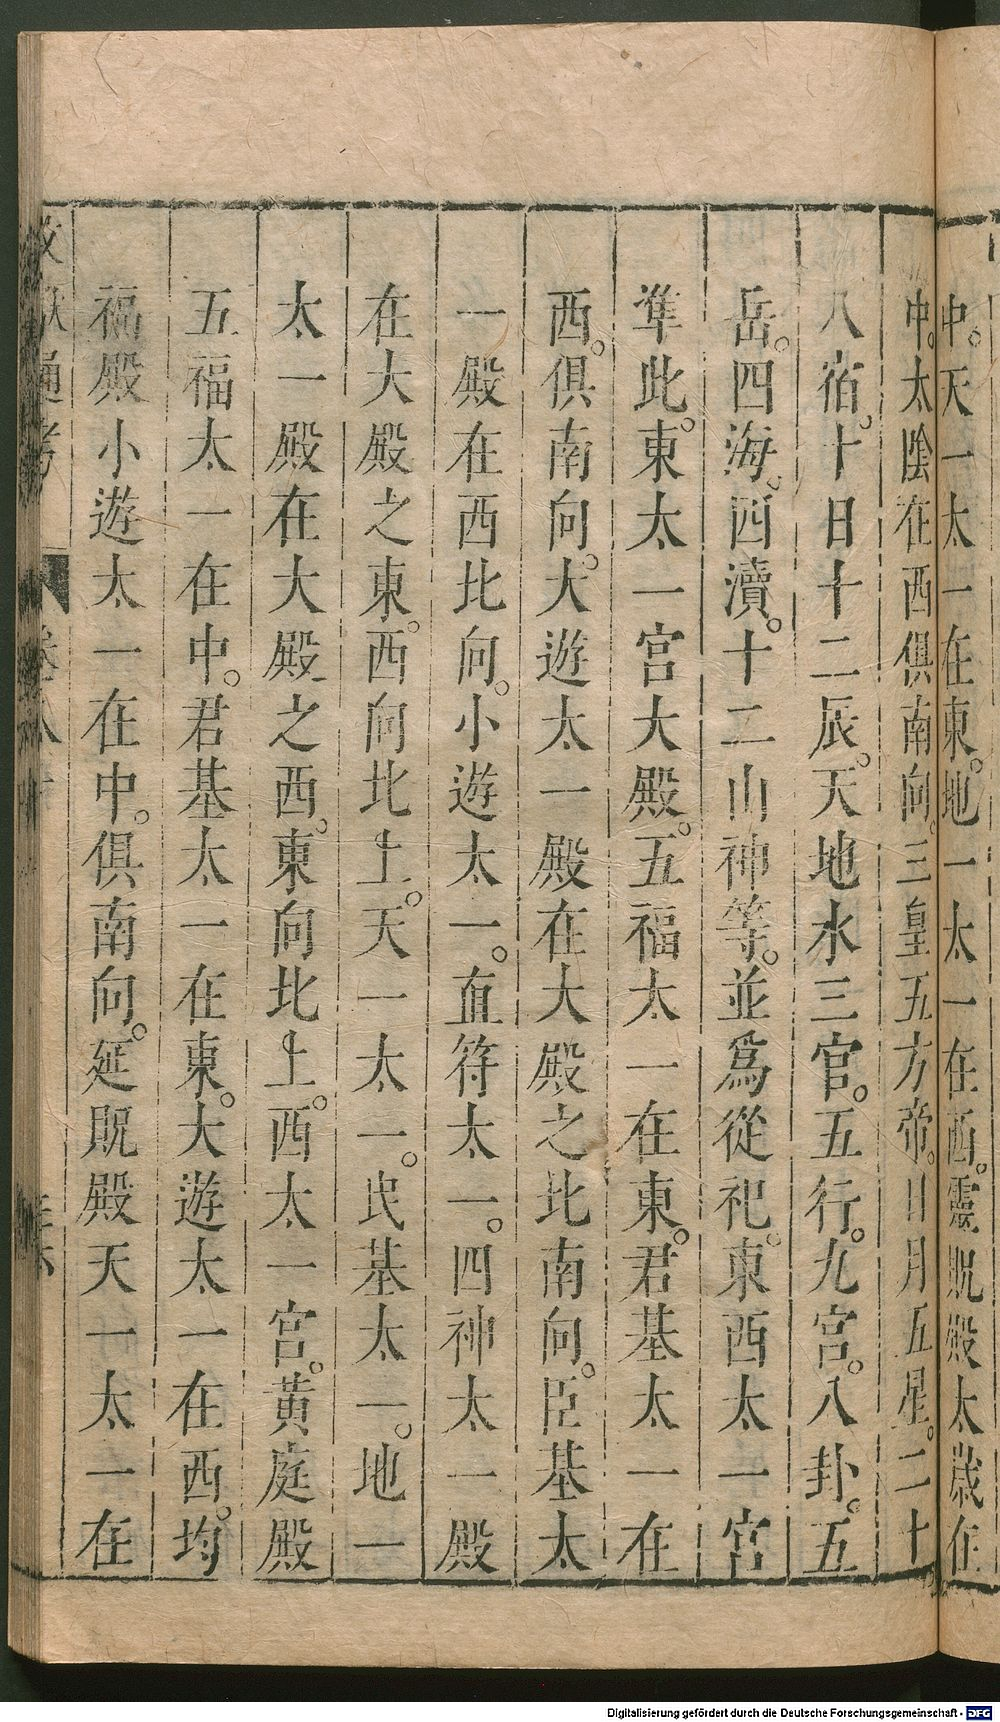 中。天一太一在東。地一太一在西。靈貺殿太歲在
中。太陰在西俱南向。三皇五方帝。日月五星。二十
八宿。十日十二辰。天地水三官。五行。九宮。八卦。五
岳。四海。四瀆。十二山神等。並爲從祀。東西太一宮
準此。東太一宮大殿。五福太一在東。君基太一在
西。俱南向。大遊太一殿在大殿之北南向。臣基太
一殿在西北向。小遊太一。直符太一。四神太一殿
在大殿之東。西向北上。天一太一。民基太一。地一
太一殿在大殿之西。東向北上。西太一宮。黃庭殿
五福太一在中。君基太一在東。大遊太一在西。均
福殿小遊太一在中。俱南向。延貺殿天一太一在
文獻通考 卷八十
Digitalisierung gefördert durch die Deutsche Forschungsgemeinschaft - DFG